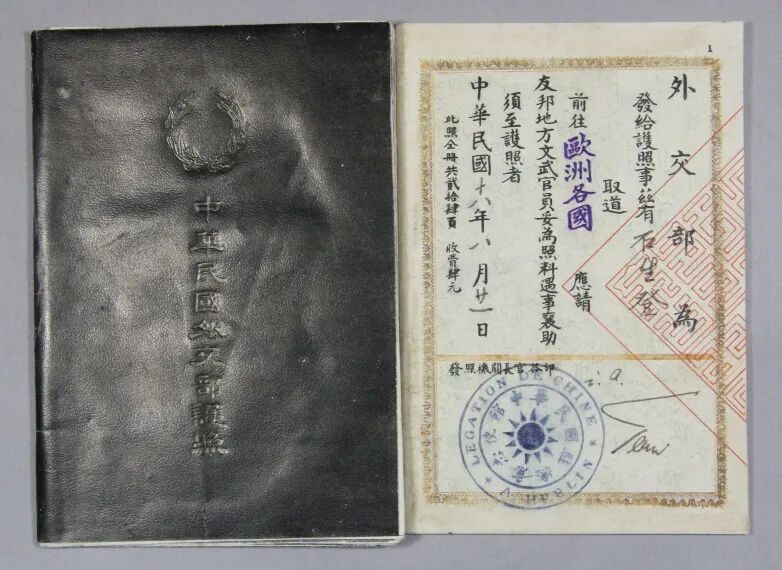 中華民國外交部護照
1
外交部為
發給護照事茲有石生登
取道
前往歐洲各國 應請
友邦地方文武官員妥為照料遇事襄助
須至護照者
中華民國十八年八月廿一日
此照全冊共貳拾肆頁 收費肆元
發照機關長官簽印
i.a.
LEGATION DE CHINE
A BERLIN
中華民國駐德意使館